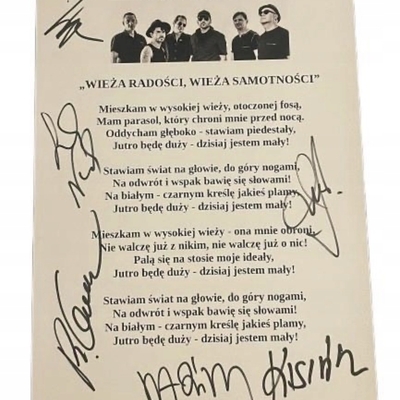 „WIEŻA RADOŚCI, WIEŻA SAMOTNOŚCI”
Mieszkam w wysokiej wieży, otoczonej fosą,
Mam parasol, który chroni mnie przed nocą.
Oddycham głęboko - stawiam piedestały,
Jutro będę duży - dzisiaj jestem mały!
Stawiam świat na głowie, do góry nogami,
Na odwrót i wspak bawię się słowami!
Na białym - czarnym kreślę jakieś plamy,
Jutro będę duży - dzisiaj jestem mały!
Mieszkam w wysokiej wieży - ona mnie obroni,
Nie walczę już z nikim, nie walczę już o nic!
Palą się na stosie moje ideały,
Jutro będę duży - dzisiaj jestem mały!
Stawiam świat na głowie, do góry nogami,
Na odwrót i wspak bawię się słowami!
Na białym - czarnym kreślę jakieś plamy,
Jutro będę duży - dzisiaj jestem mały!